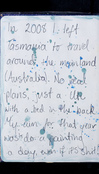 In 2008 I left
Tasmania to travel
around the mainland
(Australia). No real
plans, just a
with a bed in the back
My aim for that year
was to do a painting
a day, even if it's shit